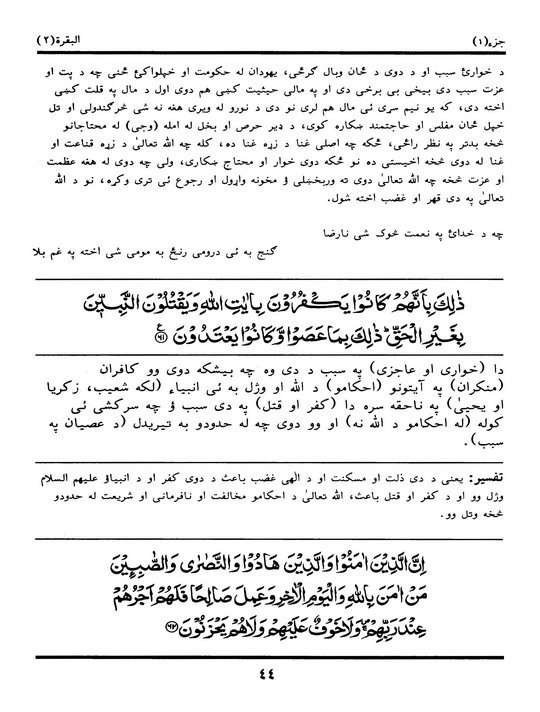 جزء(۱)
البقرة(۲)
د خوارئ سبب او د دوی د ځان وبال ګرځی، یهودان له حکومت او خپلواکئ څخنی چه د پت او
عزت سبب دی بیخی بی برخی دی او په مالی حیثیت کښی هم دوی اول د مال په قلت کښی
اخته دی، که یو نیم سری ئی مال هم لری نو دی د نورو له ویری هغه نه شی څرګندولی او تل
خپل ځان مفلس او حاجتمند ښکاره کوی، د ډیر حرص او بخل له امله (وجی) له محتاجانو
څخه بدتر په نظر راځی، ځکه چه اصلی غنا د زړه غنا ده، کله چه الله تعالیٰ د زړه قناعت او
غنا له دوی څخه اخیستی ده نو ځکه دوی خوار او محتاج ښکاری، ولی چه دوی له هغه عظمت
او عزت څخه چه الله تعالیٰ دوی ته وربخښلی ؤ مخونه واړول او رجوع ئی تری وکړه، نو د الله
تعالیٰ په دی قهر او غضب اخته شول.
چه د خدائ په نعمت څوک شی نارضا
ګنج به ئی درومی رنځ به مومی شی اخته په غم بلا
ذٰلِكَ بِاَنَّهُمْ كَانُوْا يَكْفُرُوْنَ بِاٰيٰتِ اللهِ وَيَقْتُلُوْنَ النَّبِيّٖنَ
بِغَيْرِ الْحَقِّ ؕ ذٰلِكَ بِمَا عَصَوْا وَّكَانُوْا يَعْتَدُوْنَ
دا (خواری او عاجزی) په سبب د دی وه چه بیشکه دوی وو کافران
(منکران) په آیتونو (احکامو) د الله او وژل به ئی انبیاء (لکه شعیب، زکریا
او یحییٰ) په ناحقه سره دا (کفر او قتل) په دی سبب ؤ چه سرکشی ئی
کوله (له احکامو د الله نه) او وو دوی چه له حدودو به تیریدل (د عصیان په
سبب).
تفسیر: یعنی د دی ذلت او مسکنت او د الٰهی غضب باعث د دوی کفر او د انبیاؤ علیهم السلام
وژل وو او د کفر او قتل باعث، الله تعالیٰ د احکامو مخالفت او نافرمانی او شریعت له حدودو
څخه وتل وو.
اِنَّ الَّذِيْنَ اٰمَنُوْا وَالَّذِيْنَ هَادُوْا وَالنَّصٰرٰى وَالصّٰبِـِٕيْنَ
مَنْ اٰمَنَ بِاللهِ وَالْيَوْمِ الْاٰخِرِ وَعَمِلَ صَالِحًا فَلَهُمْ اَجْرُهُمْ
عِنْدَ رَبِّهِمْ ۚ وَلَا خَوْفٌ عَلَيْهِمْ وَلَا هُمْ يَحْزَنُوْنَ ﴿۶۲﴾
٤٤